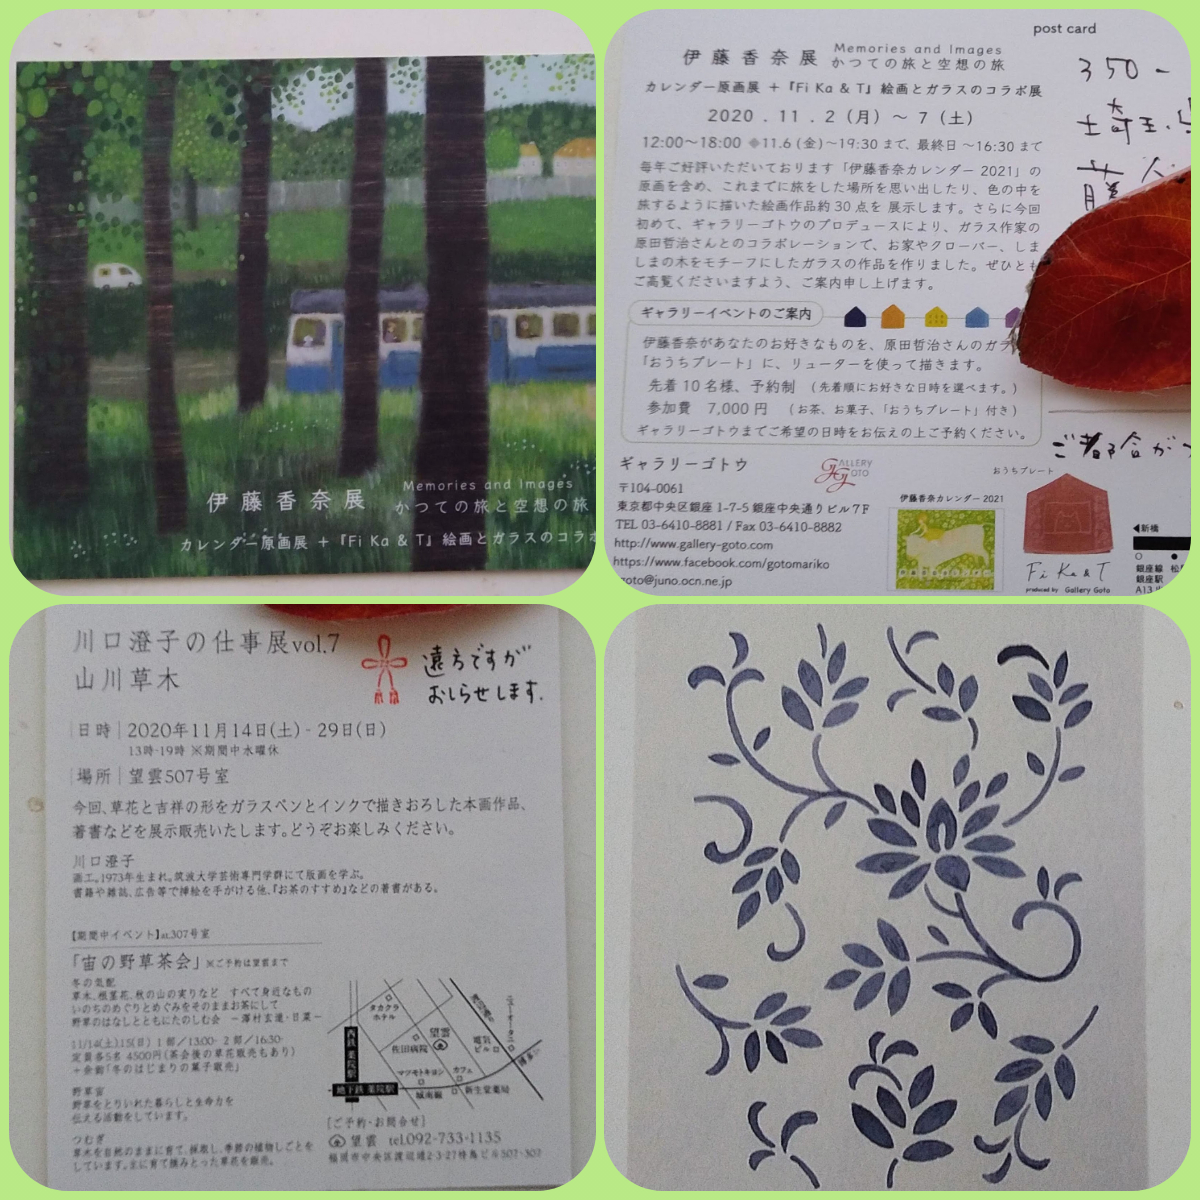 伊藤香奈展
Memories and Images
かつての旅と空想の旅
カレンダー原画展 + 『Fi Ka & T』 絵画とガラスのコラボ
post card
伊藤香奈展
Memories and Images
かつての旅と空想の旅
カレンダー原画展 + 『Fi Ka & T』 絵画とガラスのコラボ展
2020 . 11 . 2 (月) 〜 7 (土)
12:00〜18:00 ◆11.6 (金) 〜19:30 まで、最終日 〜16:30 まで
毎年ご好評いただいております「伊藤香奈カレンダー 2021」の
原画を含め、これまでに旅をした場所を思い出したり、色の中を
旅するように描いた絵画作品約 30 点を 展示します。さらに今回
初めて、ギャラリーゴトウのプロデュースにより、ガラス作家の
原田哲治さんとのコラボレーションで、お家やクローバー、しま
しまの木をモチーフにしたガラスの作品を作りました。ぜひとも
ご高覧くださいますよう、ご案内申し上げます。
ギャラリーイベントのご案内
伊藤香奈があなたのお好きなものを、原田哲治さんのガラ
「おうちプレート」に、リューターを使って描きます。
先着 10 名様、予約制 (先着順にお好きな日時を選べます。)
参加費 7,000 円 (お茶、お菓子、「おうちプレート」付き)
ギャラリーゴトウまでご希望の日時をお伝えの上ご予約ください。
ギャラリーゴトウ
〒104-0061
東京都中央区銀座 1-7-5 銀座中央通りビル7F
TEL 03-6410-8881 / Fax 03-6410-8882
http://www.gallery-goto.com
https://www.facebook.com/gotomariko
goto@juno.ocn.ne.jp
GALLERY
GOTO
伊藤香奈カレンダー 2021
おうちプレート
Fi Ka & T
produced by Gallery Goto
350-
埼玉県
藤
ご都合がつ
◀新橋
銀座線
銀座駅
A13
川口澄子の仕事展vol.7
山川草木
遠方ですが
おしらせします.
日時 2020年11月14日(土) - 29日(日)
13時-19時 ※期間中水曜休
場所 望雲507号室
今回、草花と吉祥の形をガラスペンとインクで描きおろした本画作品、
著書などを展示販売いたします。どうぞお楽しみください。
川口澄子
画工。1973年生まれ。筑波大学芸術専門学群にて版画を学ぶ。
書籍や雑誌、広告等で挿絵を手がける他、『お茶のすすめ』などの著書がある。
【期間中イベント】at.307号室
「宙の野草茶会」 ※ご予約は望雲まで
冬の気配
草木、根茎花、秋の山の実りなど すべて身近なもの
いのちのめぐりとめぐみをそのままお茶にして
野草のはなしとともにたのしむ会 －澤村玄道・日菜－
11/14(土),15(日) 1部／13:00- 2部／16:30-
定員各5名 4500円(茶会後の草花販売もあり)
+会館「冬のはじまりの菓子販売」
野草宙
野草をとりいれた暮らしと生命力を
伝える活動をしています。
つむぎ
草木を自然のままに育て、採取し、季節の植物しごとを
しています。主に育て摘みとった草花を販売。
タカクラ
ホテル
望雲
佐田病院
電気
ビル
マツモトキヨシ
カフェ
城南線
新生堂薬局
西鉄 薬院駅
地下鉄 薬院駅
ニューオータニ
[ご予約・お問合せ]
望雲 tel.092-733-1135
福岡市中央区渡辺通2-3-27特島ビル507・307